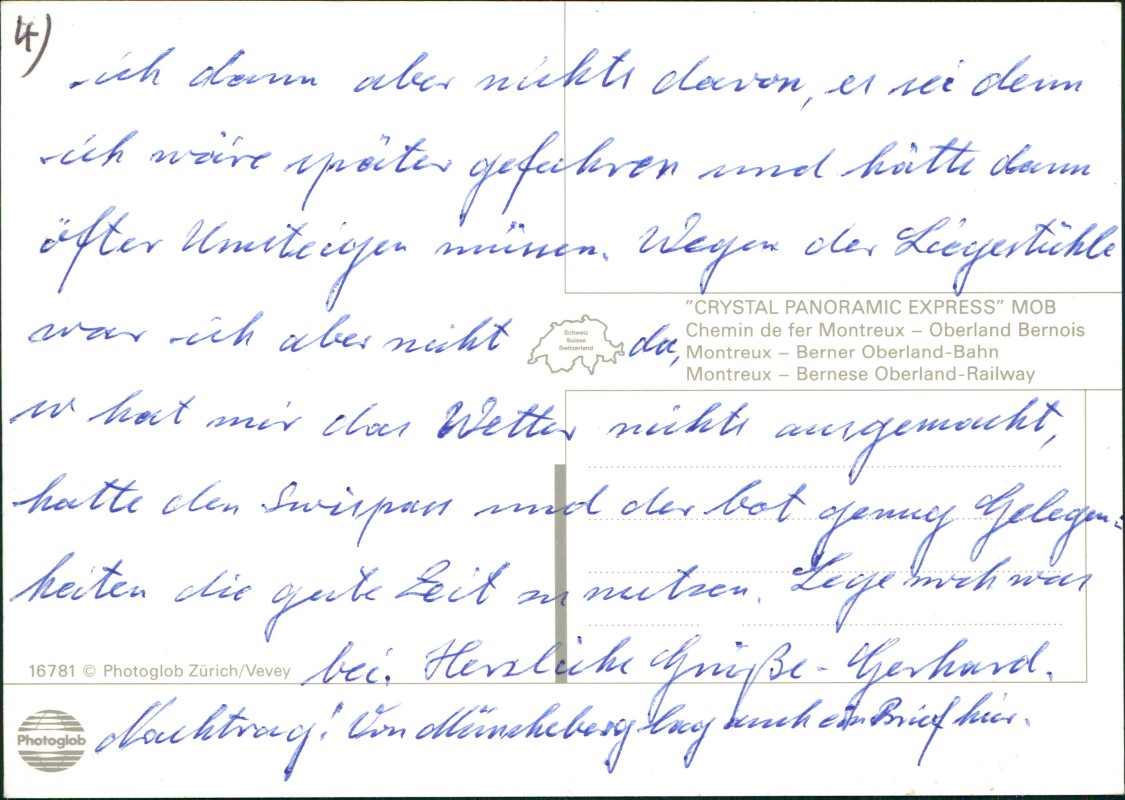 4)
ich dann aber nichts davon, es sei denn
ich wäre später gefahren und hätte dann
öfter Umsteigen müssen. Wegen der Liegestühle
"CRYSTAL PANORAMIC EXPRESS" MOB
Chemin de fer Montreux – Oberland Bernois
Montreux – Berner Oberland-Bahn
Montreux – Bernese Oberland-Railway
Schweiz
Suisse
Switzerland
war ich aber nicht da,
so hat mir das Wetter nichts ausgemacht,
hatte den Swispass und der bot genug Gelegen=
heiten die gute Zeit zu nutzen. Lege noch was
bei. Herzliche Grüße - Gerhard.
16781 © Photoglob Zürich/Vevey
Photoglob
Nachtrag! Von Müncheberg lag auch ein Brief hier.